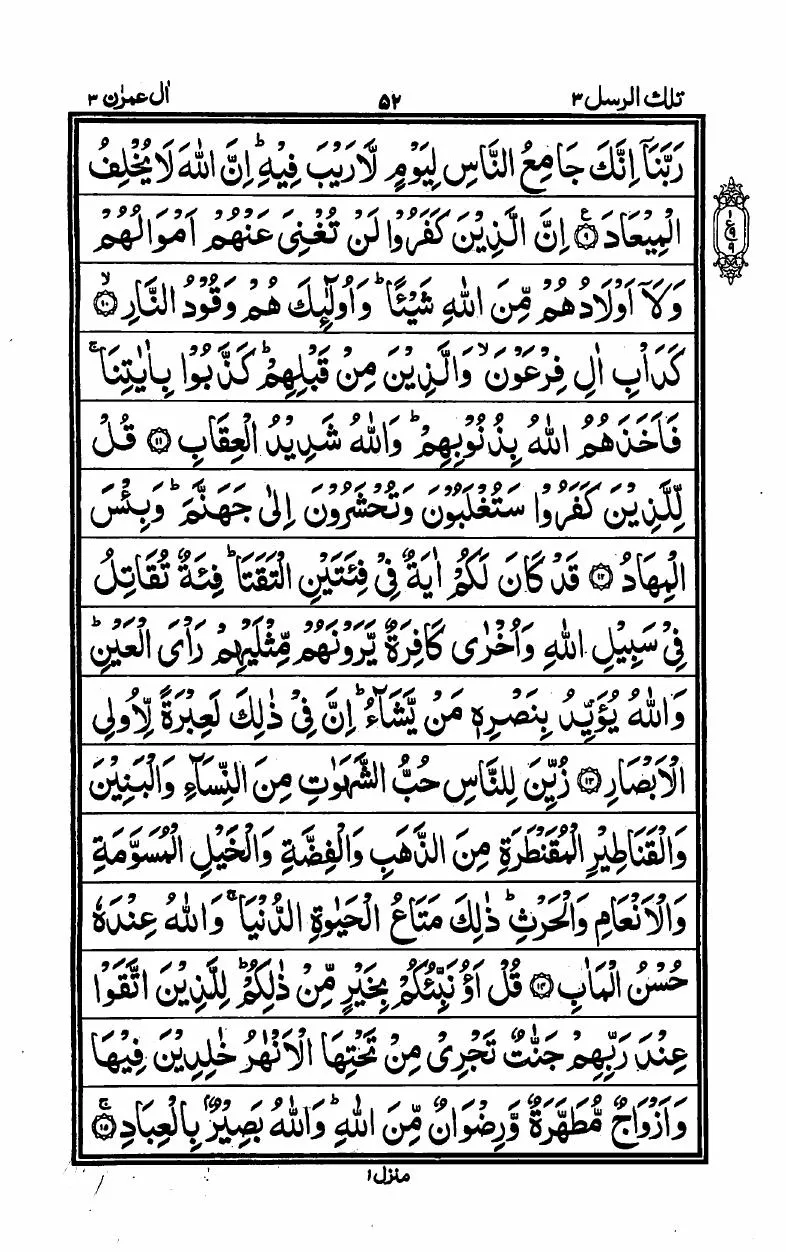 تلك الرسل ٣ ۵۲ اٰل عمرٰن ٣
رَبَّنَآ اِنَّكَ جَامِعُ النَّاسِ لِيَوْمٍ لَّا رَيْبَ فِيْهِ ؕ اِنَّ اللّٰهَ لَا يُخْلِفُ
الْمِيْعَادَ ۝۹ۧ اِنَّ الَّذِيْنَ كَفَرُوْا لَنْ تُغْنِىَ عَنْهُمْ اَمْوَالُهُمْ
وَلَاۤ اَوْلَادُهُمْ مِّنَ اللّٰهِ شَيْـًٔا ؕ وَاُولٰٓئِكَ هُمْ وَقُوْدُ النَّارِ ۙ۝۱۰
كَدَاْبِ اٰلِ فِرْعَوْنَ ۙ وَالَّذِيْنَ مِنْ قَبْلِهِمْ ؕ كَذَّبُوْا بِاٰيٰتِنَا ۚ
فَاَخَذَهُمُ اللّٰهُ بِذُنُوْبِهِمْ ؕ وَاللّٰهُ شَدِيْدُ الْعِقَابِ ۝۱۱ قُلْ
لِّلَّذِيْنَ كَفَرُوْا سَتُغْلَبُوْنَ وَتُحْشَرُوْنَ اِلٰى جَهَنَّمَ ؕ وَبِئْسَ
الْمِهَادُ ۝۱۲ قَدْ كَانَ لَكُمْ اٰيَةٌ فِىْ فِئَتَيْنِ الْتَقَتَا ؕ فِئَةٌ تُقَاتِلُ
فِىْ سَبِيْلِ اللّٰهِ وَاُخْرٰى كَافِرَةٌ يَّرَوْنَهُمْ مِّثْلَيْهِمْ رَاْىَ الْعَيْنِ ؕ
وَاللّٰهُ يُؤَيِّدُ بِنَصْرِهٖ مَنْ يَّشَآءُ ؕ اِنَّ فِىْ ذٰلِكَ لَعِبْرَةً لِّاُولِى
الْاَبْصَارِ ۝۱۳ زُيِّنَ لِلنَّاسِ حُبُّ الشَّهَوٰتِ مِنَ النِّسَآءِ وَالْبَنِيْنَ
وَالْقَنَاطِيْرِ الْمُقَنْطَرَةِ مِنَ الذَّهَبِ وَالْفِضَّةِ وَالْخَيْلِ الْمُسَوَّمَةِ
وَالْاَنْعَامِ وَالْحَرْثِ ؕ ذٰلِكَ مَتَاعُ الْحَيٰوةِ الدُّنْيَا ۚ وَاللّٰهُ عِنْدَهٗ
حُسْنُ الْمَاٰبِ ۝۱۴ قُلْ اَؤُنَبِّئُكُمْ بِخَيْرٍ مِّنْ ذٰلِكُمْ ؕ لِلَّذِيْنَ اتَّقَوْا
عِنْدَ رَبِّهِمْ جَنّٰتٌ تَجْرِىْ مِنْ تَحْتِهَا الْاَنْهٰرُ خٰلِدِيْنَ فِيْهَا
وَاَزْوَاجٌ مُّطَهَّرَةٌ وَّرِضْوَانٌ مِّنَ اللّٰهِ ؕ وَاللّٰهُ بَصِيْرٌۢ بِالْعِبَادِ ۚ۝۱۵
منزل ۱
۱
ع
۹
۹